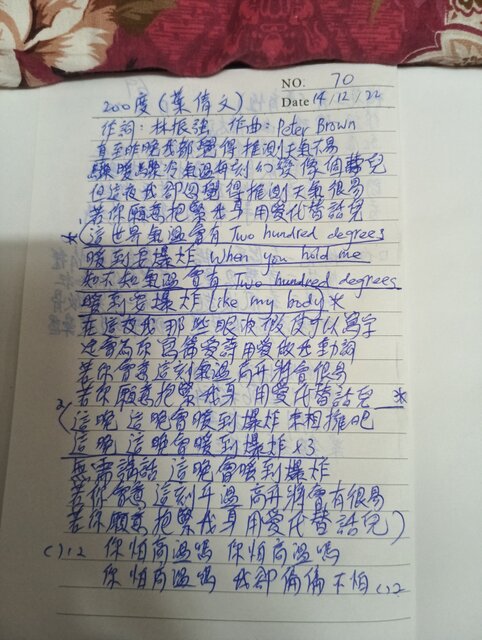 NO. 70
Date 14/12/22
200度(葉倩文)
作詞:林振強 作曲:Peter Brown
直至昨晚我都覺得推測天氣不易
驟暖驟冷氣溫每刻幻變像個
但這夜我卻覺得推測天氣很易
若你願意把緊我身用愛代替話兒
*(這世界氣溫會有Two hundred degrees
暖到若爆炸When you hold me
知不知氣溫會有Two hundred degrees
暖到若爆炸like my body*
在這夜我那些眼波假使可以寫字
定會為你寫篇愛詩用愛做我動詞
若你會意這刻氣溫高升將會很易
若你願意把緊我身用愛代替話兒 *
2(這晚 這晚會暖到爆炸 來相擁吧
這晚 這晚會暖到爆炸x3
無需講話 這晚會暖到爆炸
若你會意這刻升溫高升將會有很易
若你願意把緊我身用愛代替話兒)
( )12 你怕高溫嗎 你怕高溫嗎
你怕高溫嗎 我卻偏偏不怕( )2